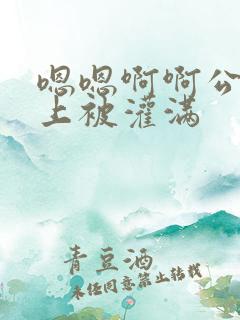 嗯嗯啊啊公
上被灌满
青豆酒
未经同意禁止转载